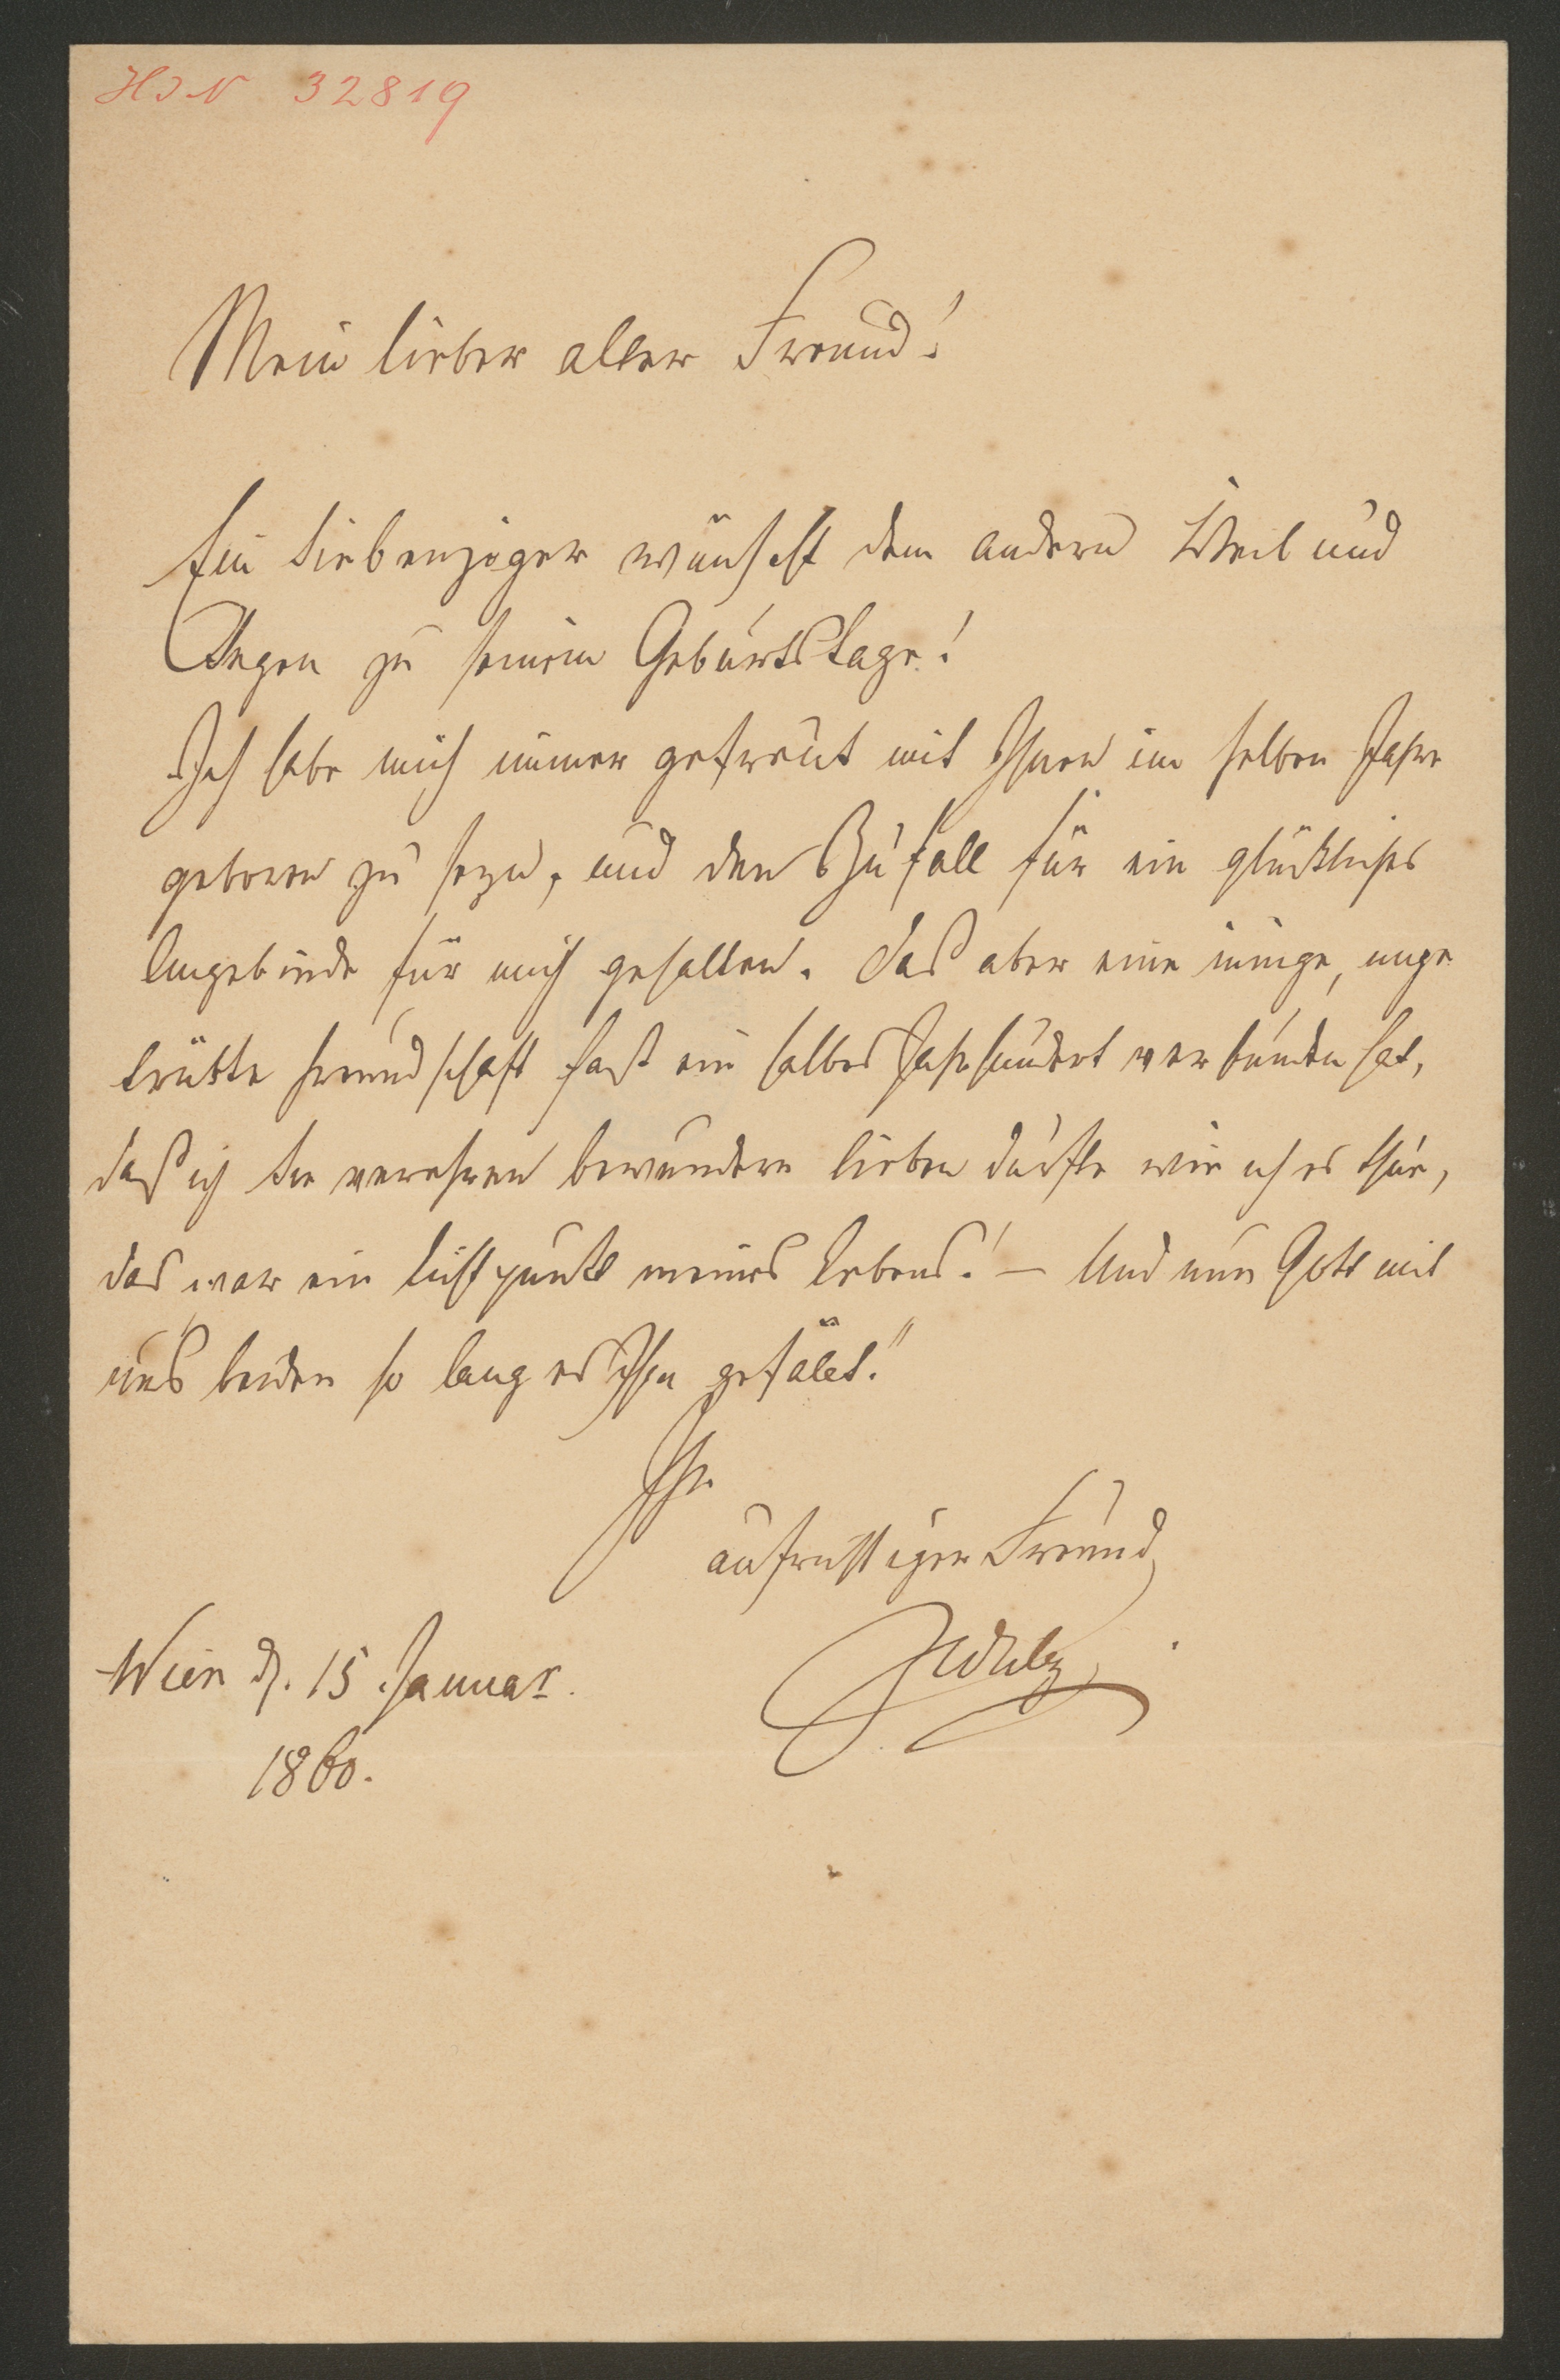 HIN 32819
Mein lieber alter Freund!
Ein Siebenziger wünscht dem andern Heil und
Segen zu seinem Geburtstage!
Ich habe mich immer gefreut mit Ihnen im selben Jahre
geboren zu seyn, und den Zufall für ein glückliches
Angebinde für mich gehalten. Daß aber eine innige, unge
trübte Freundschaft fast ein halbes Jahrhundert verbunden hat,
daß ich Sie verehren bewundern lieben durfte wie ich es thue,
das war ein Lichtpunkt meines Lebens! — Und nun Gott mit
uns beiden so lang es Ihm gefällt!
Ihr
aufrichtiger Freund
Wien d. 15 Januar
1860.